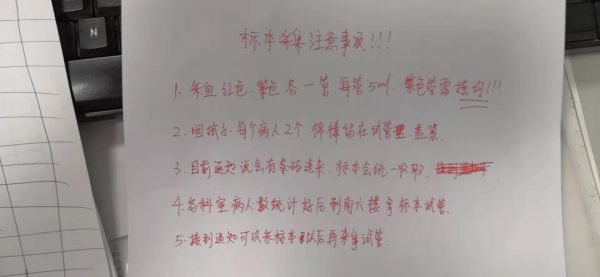 标本采集注意事项!!!
1. 采血红色、紫色各一管,每管5ml. 紫色管需摇均!!!
2. 咽拭子、每个病人2个、棉棒留在试管里. 盖紧.
3. 目前通知说会有条码送来、标本会统一收取.
4. 各科室病人数统计好后到南六楼拿标本试管.
5. 接到通知可以采标本以后再来拿试管.
N